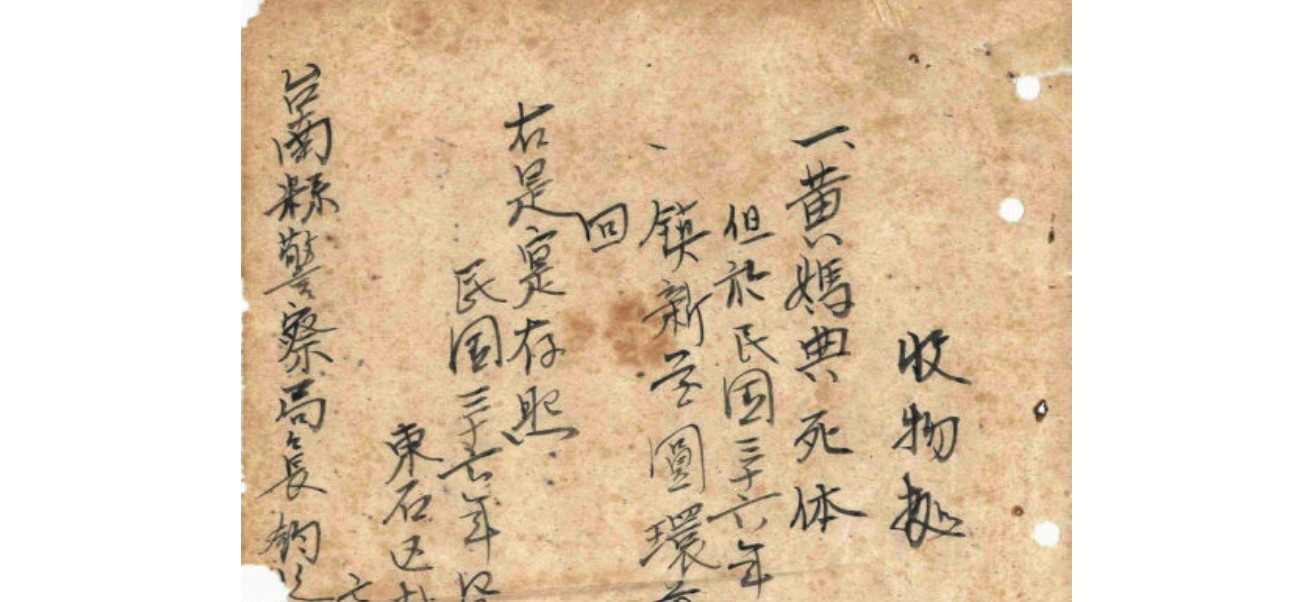 收物据
一、黄媽典死体
但於民国三十六年
鎮新营圓環前
回
右是寔存照
民国三十六年
東石区
台南縣警察局局長 鈞